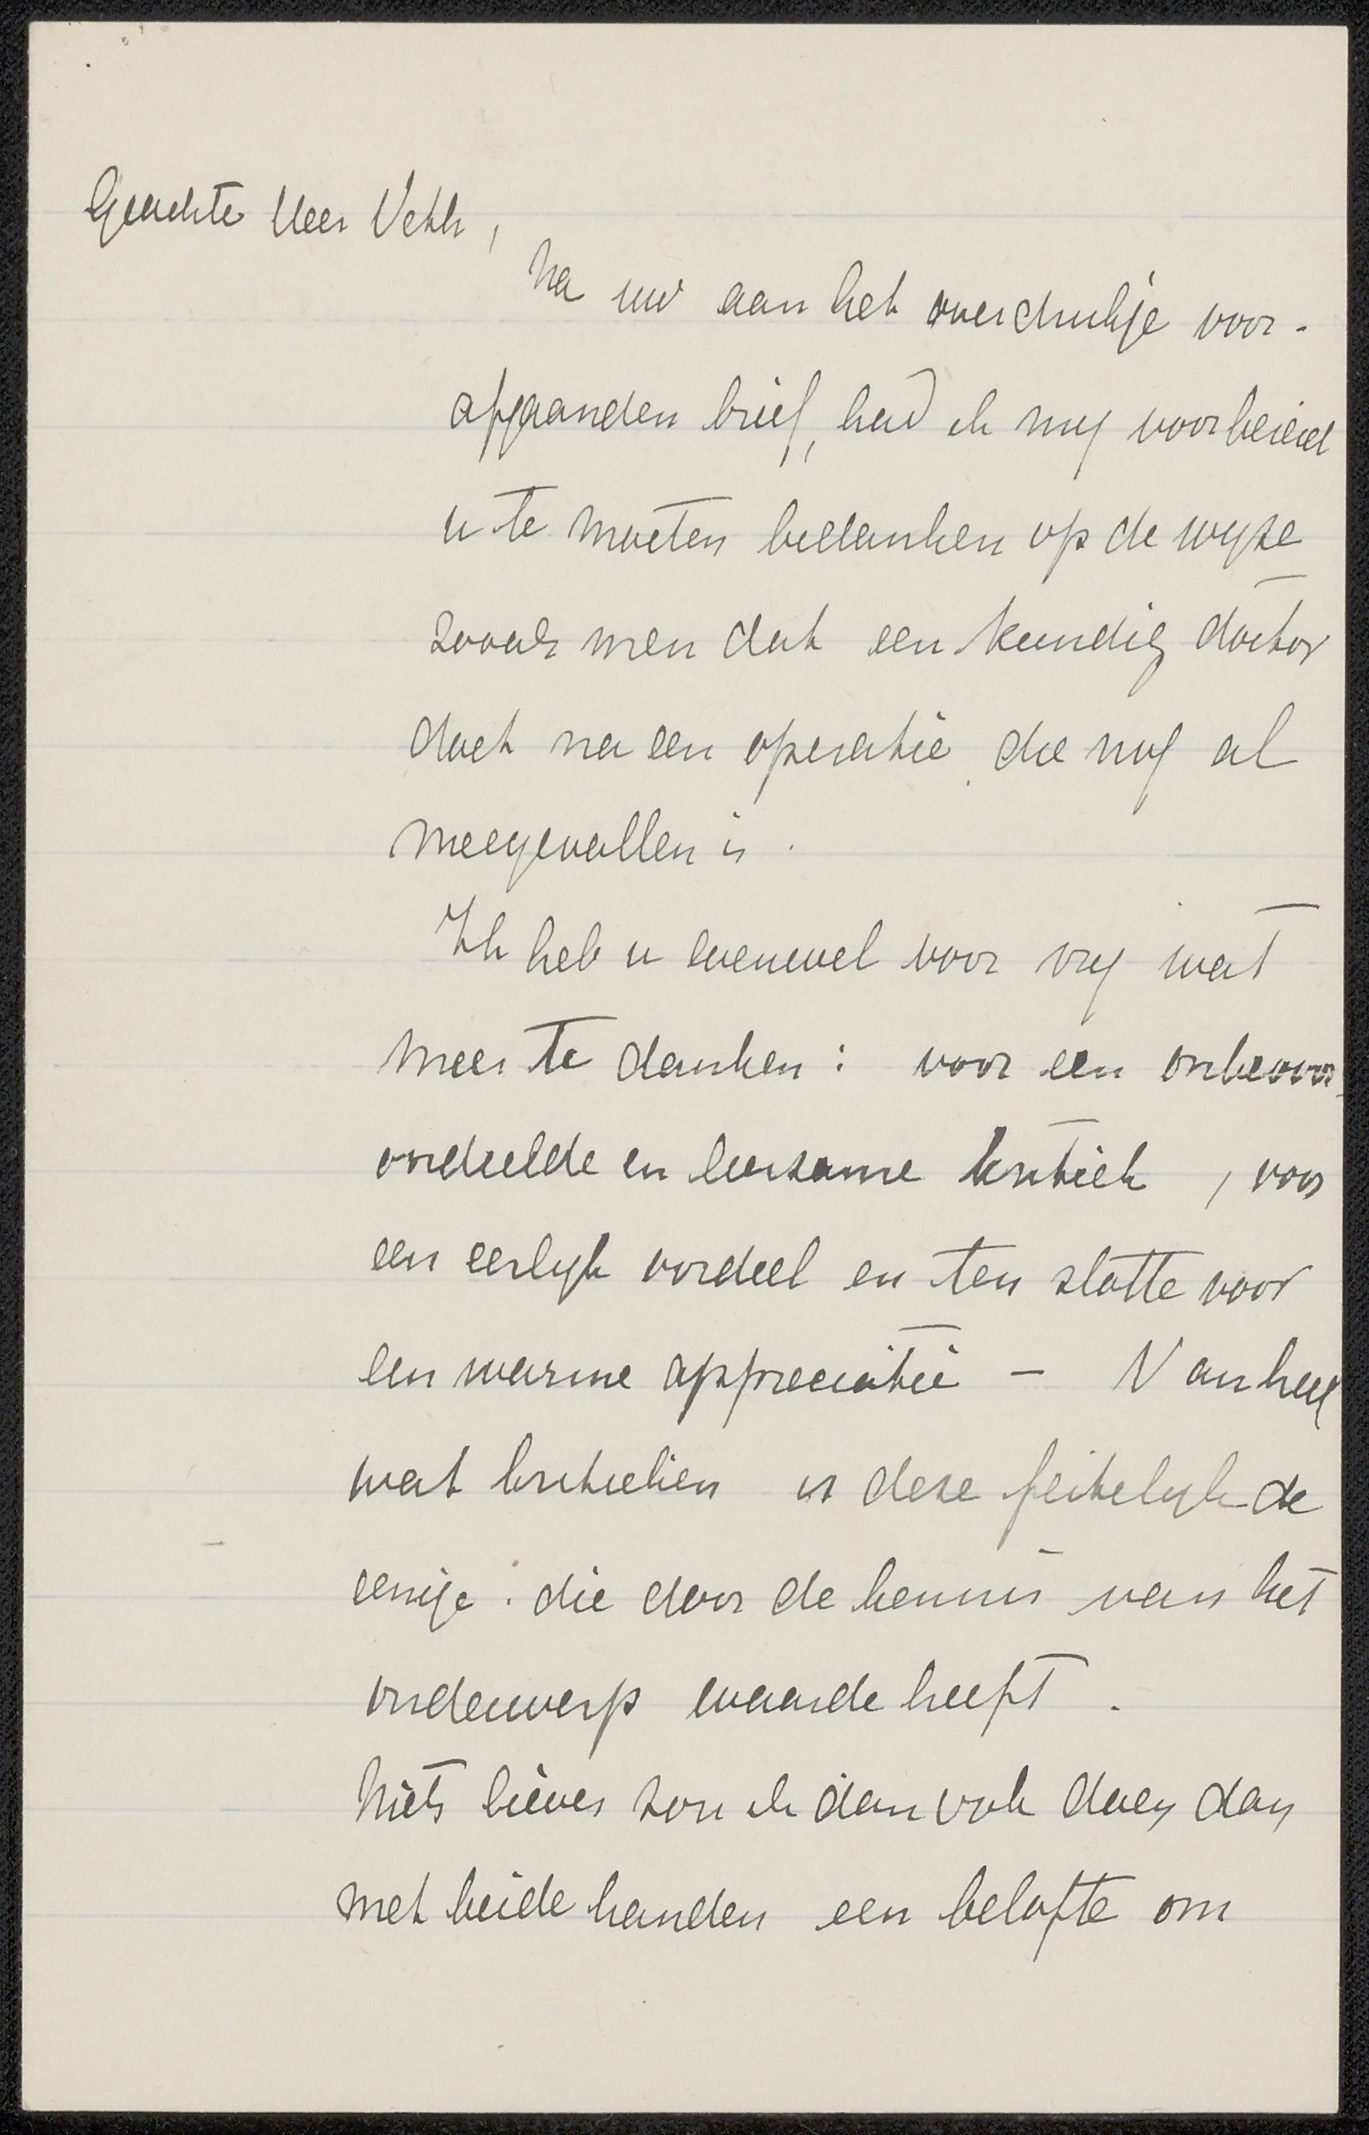 Geachte Heer Veth,
Na uw aan het overdrukje voor-
afgaanden brief, had ik my voorbereid
u te moeten bedanken op de wyze
zooals men dat een kundig doctor
doet na een operatie die nog al
meegevallen is.
Ik heb u evenwel voor vry wat
meer te danken: voor een onbevoor-
oordeelde en leerzame kritiek, voor
een eerlyk oordeel en ten slotte voor
een warme appreciatie – Van heel
wat kritieken is deze feitelyk de
eenige die door de kennis van het
onderwerp waarde heeft.
Niets liever zou ik dan ook doen dan
met beide handen een belofte om